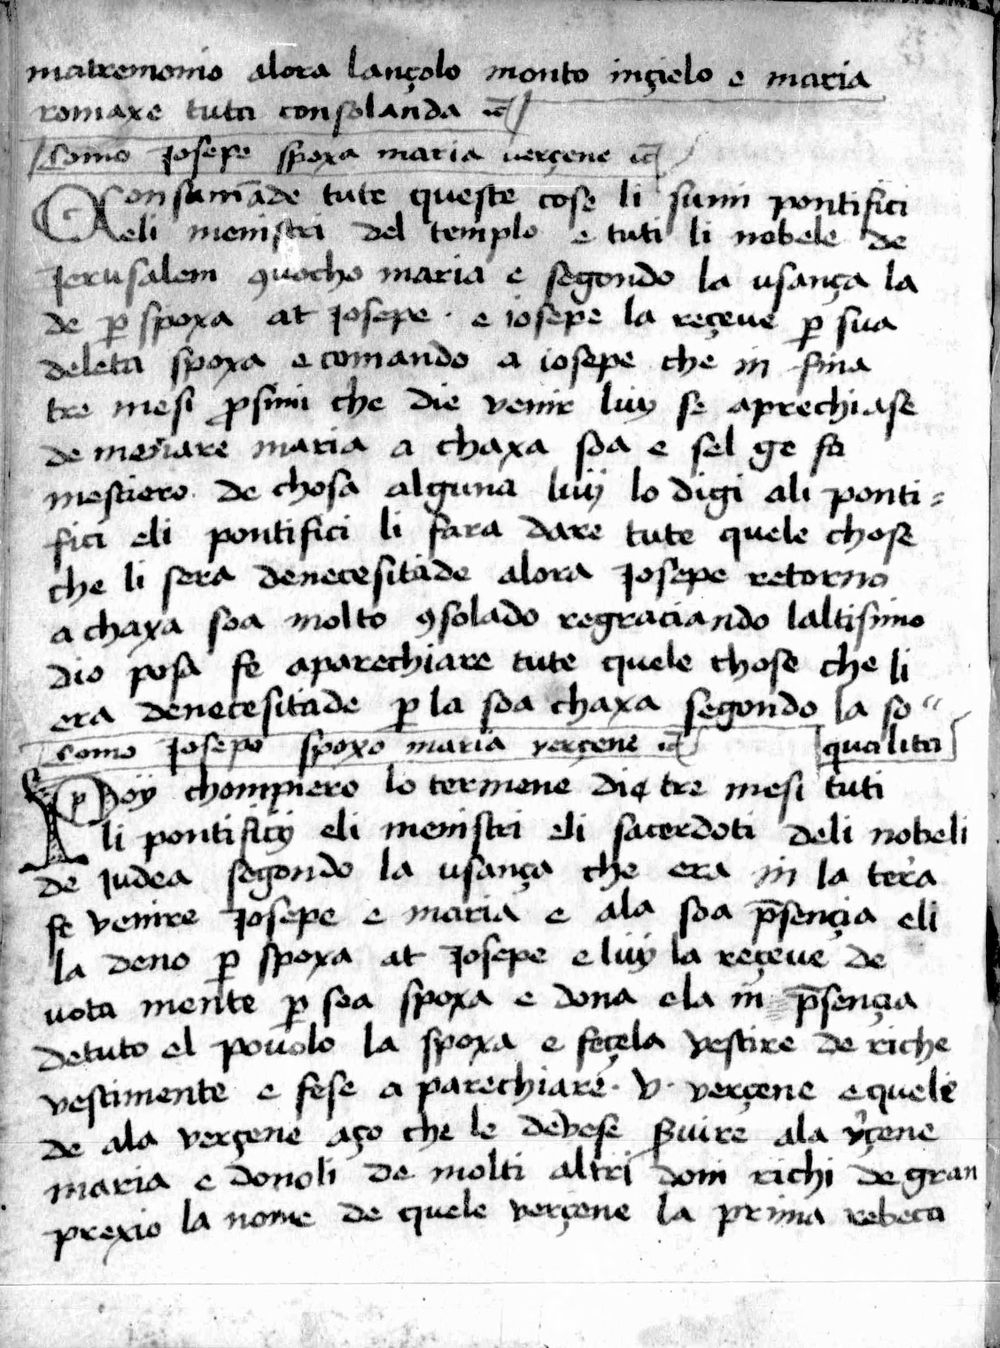 matremonio alora lançolo monto inçielo e maria
romaxe tuta consolanda
Como Josepe spoxa maria verçene
Consumade tute queste cose li sumi pontifici
eli menistri del templo e tuti li nobele de
Jerusalem ꝯvocho maria e segondo la usança la
de ꝑ spoxa at Josepe · e iosepe la reçeve ꝑ sua
deleta spoxa e comando a iosepe che in fina
tre mesi ꝓsimi che die venir luy se aprechiase
de menare maria a chaxa soa e sel ge fa
mestiero de chosa alguna luy lo digi ali ponti=
fici eli pontifici li fara dare tute quele chose
che li sera denecesitade alora Josepe retorno
a chaxa soa molto ꝯsolado regraciando laltisimo
dio posa fe aparechiare tute quele chose che li
era denecesitade ꝑ la soa chaxa segondo la so"
qualita
Como Josepo spoxo maria verçene
Poy chompiero lo termene die tre mesi tuti
li pontificij eli menistri eli sacerdoti deli nobeli
de Judea segondo la usança che era in la tera
fe venire Josepe e maria e ala soa p̄sençia eli
la deno ꝑ spoxa at Josepe e luy la reçeve de
vota mente ꝑ soa spoxa e dona ela in p̄sençia
detuto el povolo la spoxa e feçela vestire de riche
vestimente e fese a parechiare · V · verçene e quele
de ala verçene aço che le devese s̄vire ala v̓çene
maria e donoli de molti altri doni richi de gran
prexio la nome de quele verçene la prima rebeca